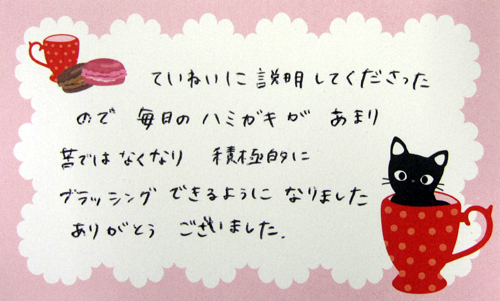 ていねいに 説明してくださった
ので 毎日のハミガキが あまり
苦ではなくなり 積極的に
ブラッシングできるように なりました
ありがとう ございました.